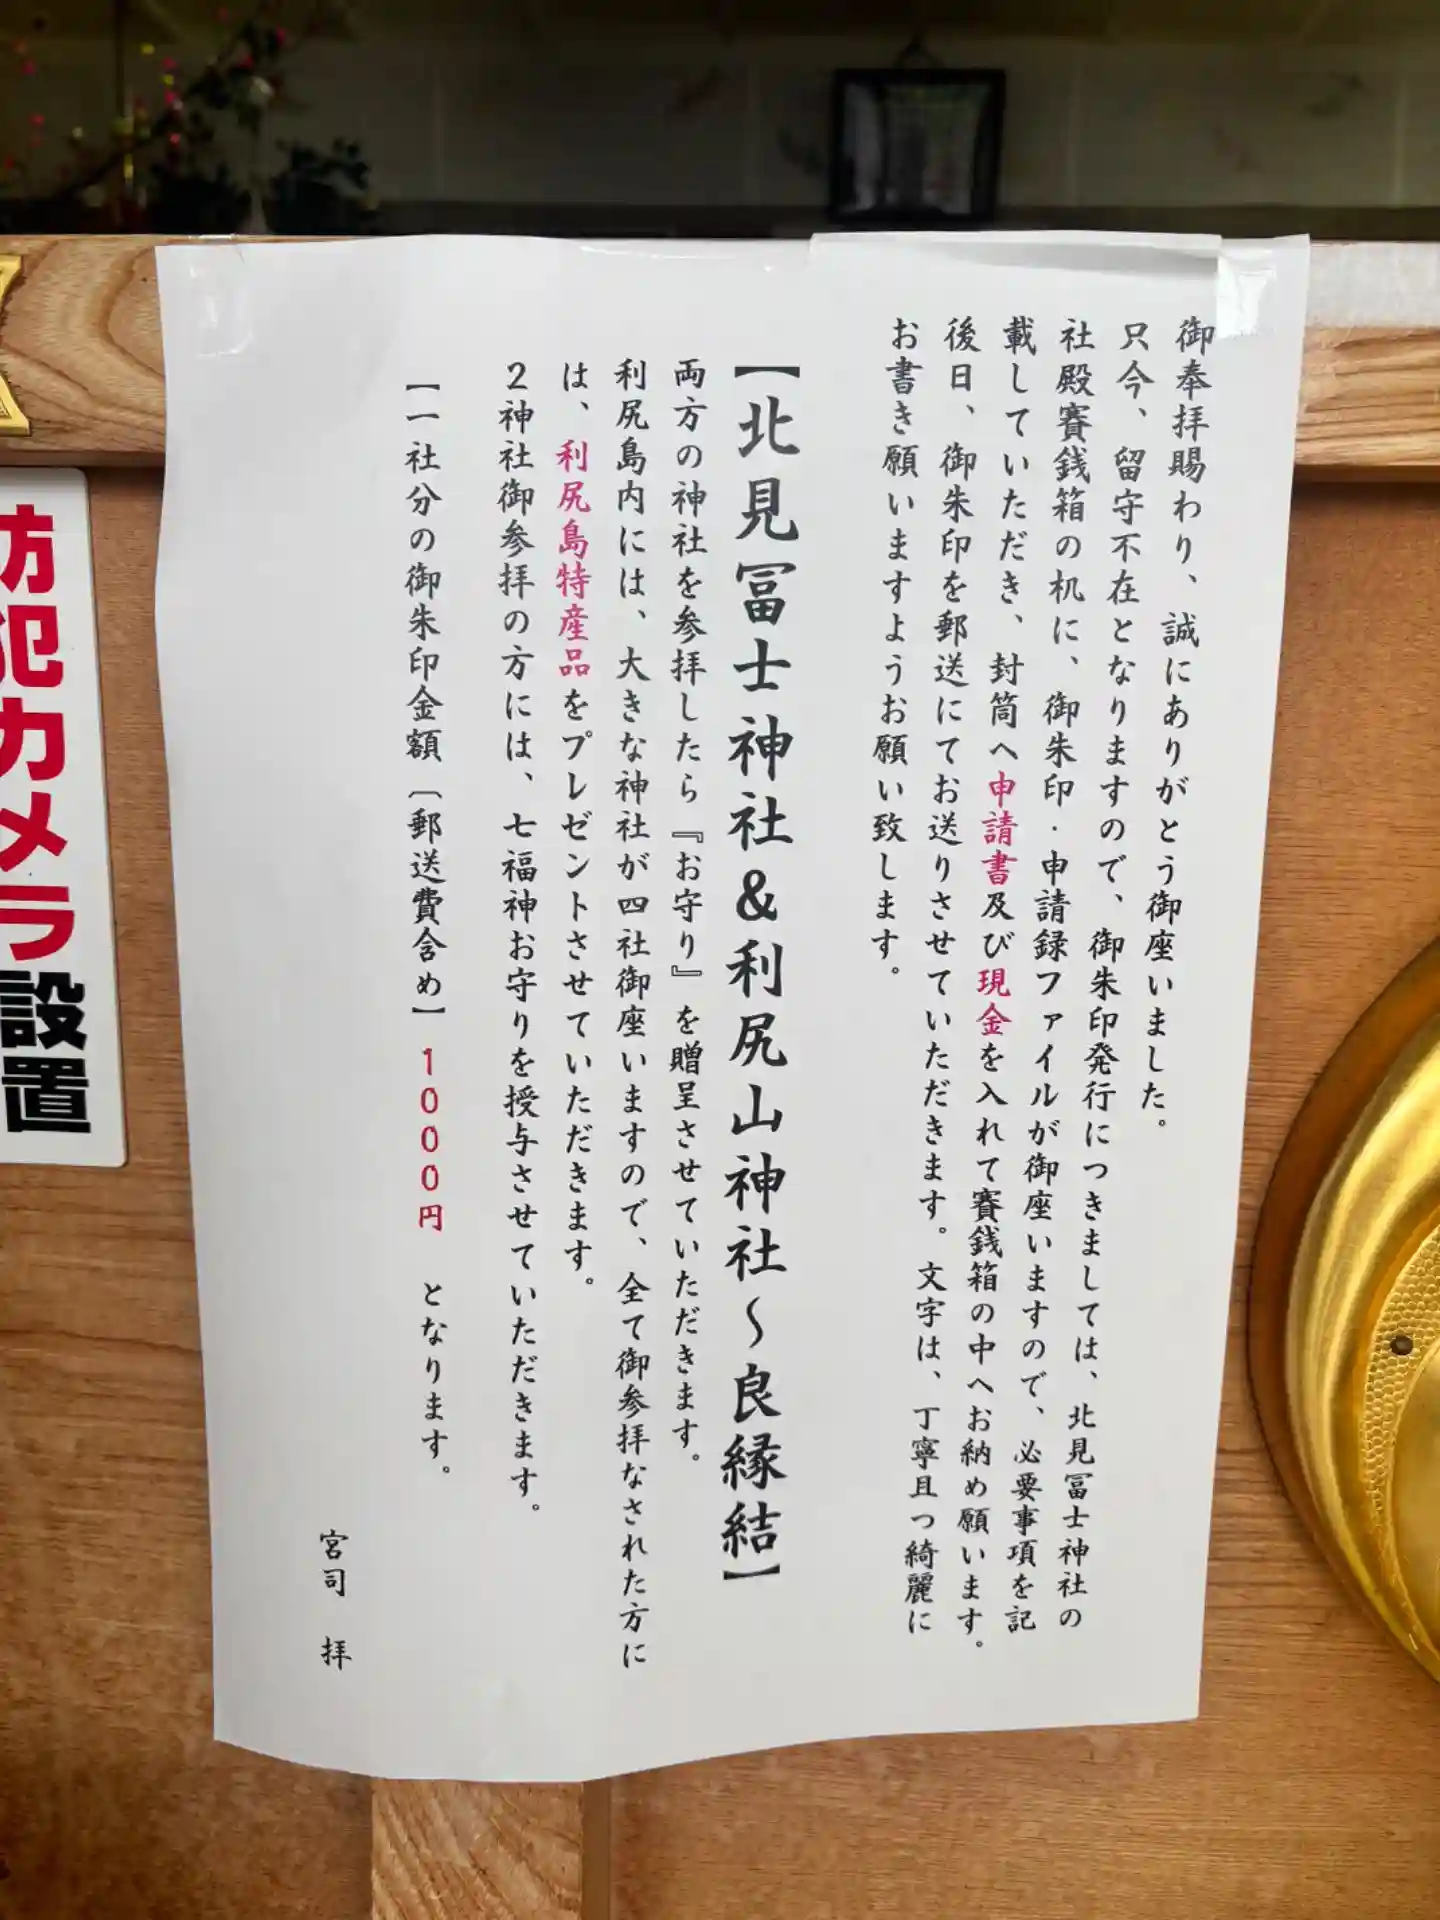 御奉拝賜わり、誠にありがとう御座いました。
只今、留守不在となりますので、御朱印発行につきましては、北見冨士神社の
社殿賽銭箱の机に、御朱印・申請録ファイルが御座いますので、必要事項を記
載していただき、封筒へ申請書及び現金を入れて賽銭箱の中へお納め願います。
後日、御朱印を郵送にてお送りさせていただきます。文字は、丁寧且つ綺麗に
お書き願いますようお願い致します。
【北見冨士神社&利尻山神社～良縁結】
両方の神社を参拝したら『お守り』を贈呈させていただきます。
利尻島内には、大きな神社が四社御座いますので、全て御参拝なされた方に
は、利尻島特産品をプレゼントさせていただきます。
２神社御参拝の方には、七福神お守りを授与させていただきます。
【一社分の御朱印金額〔郵送費含め】１０００円　となります。
宮司　拝
防犯カメラ設置